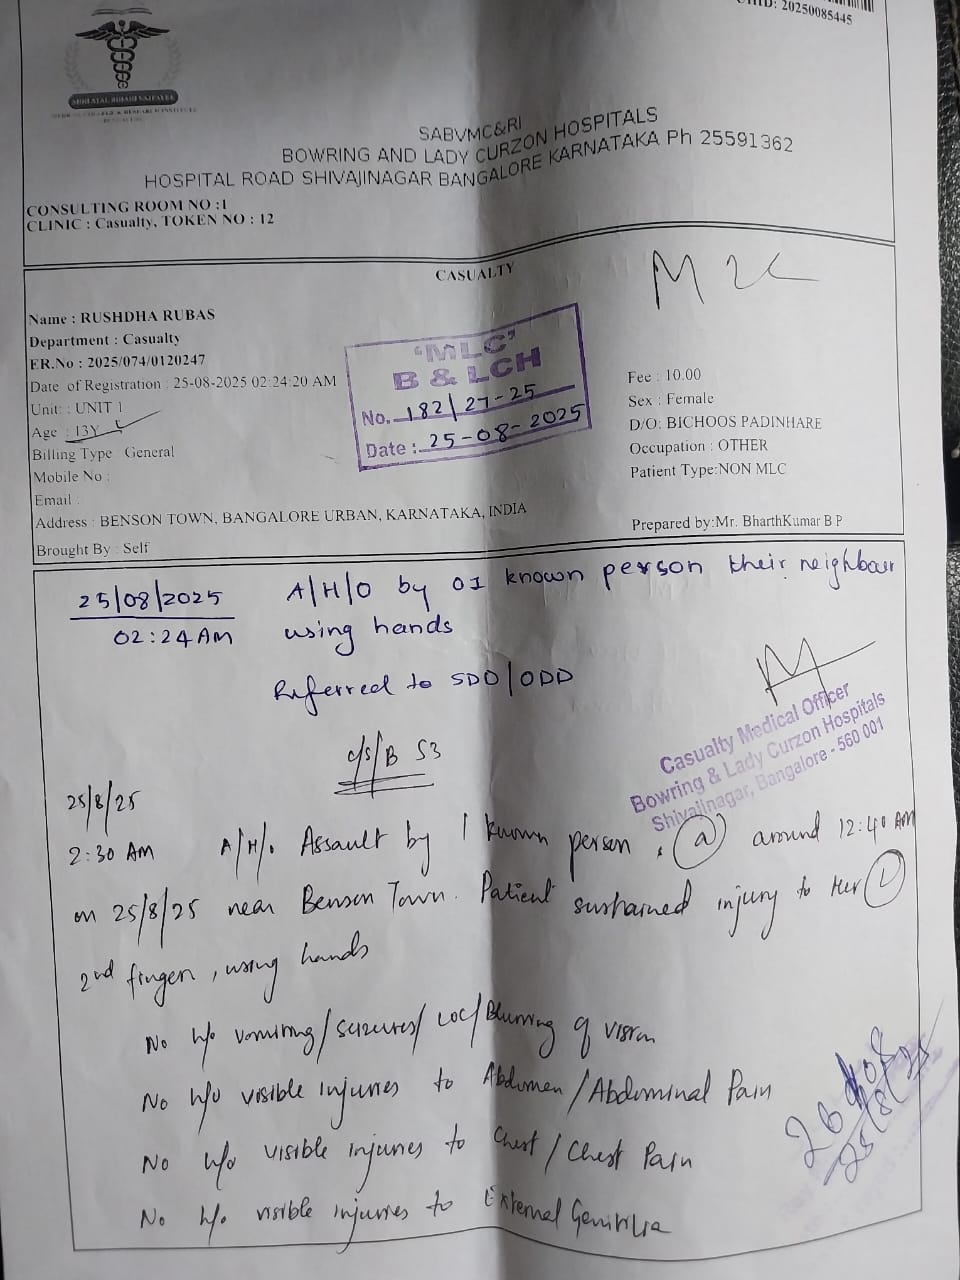 UHID: 20250085445
SHRI ATAL BIHARI VAJPAYEE
MEDICAL COLLEGE & RESEARCH INSTITUTE
SABVMC&RI
BOWRING AND LADY CURZON HOSPITALS
HOSPITAL ROAD SHIVAJINAGAR BANGALORE KARNATAKA Ph 25591362
CONSULTING ROOM NO :1
CLINIC : Casualty, TOKEN NO : 12
CASUALTY
Name : RUSHDHA RUBAS
Department : Casualty
ER.No : 2025/074/0120247
Date of Registration : 25-08-2025 02:24:20 AM
Unit: : UNIT 1
Age : 13Y
Billing Type General
Mobile No :
Email :
Address : BENSON TOWN, BANGALORE URBAN, KARNATAKA, INDIA
Brought By : Self
'MLC'
B & LCH
No. 182/27-25
Date : 25-08-2025
Fee : 10.00
Sex : Female
D/O: BICHOOS PADINHARE
Occupation : OTHER
Patient Type:NON MLC
Prepared by:Mr. BharthKumar B P
25/08/2025 A/H/O by 01 known person their neighbour
02:24 AM using hands
Referred to SDO/ODD
Casualty Medical Officer
Bowring & Lady Curzon Hospitals
Shivajinagar, Bangalore - 560 001
c/s/B S3
25/8/25
2:30 AM A/H/o Assault by 1 known person, @ around 12:40 AM
on 25/8/25 near Benson Town. Patient sustained injury to Her (L)
2nd finger, using hands
No h/o vomiting/seizures/LOC/Blurring of vision
No h/o visible injuries to Abdomen/Abdominal Pain
No h/o visible injuries to Chest/Chest Pain
No h/o visible injuries to External Genitilia
25/8/25